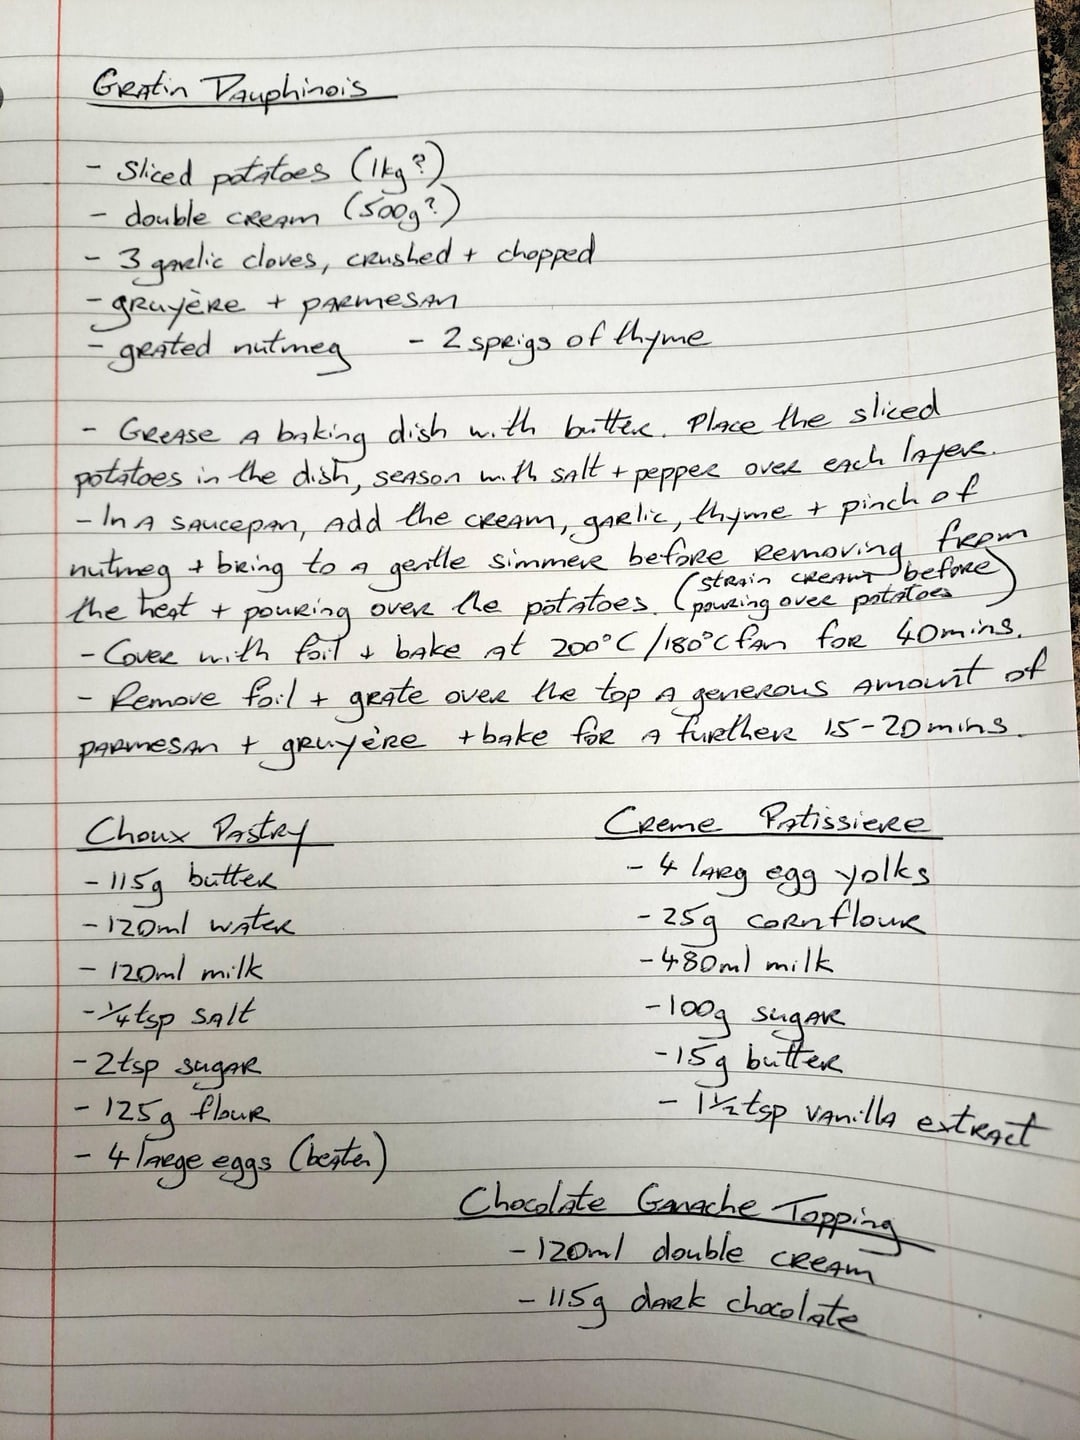 Gratin Dauphinois
- Sliced potatoes (1kg?)
- double cream (500g?)
- 3 garlic cloves, crushed + chopped
- gruyère + parmesan
- grated nutmeg - 2 sprigs of thyme
- Grease a baking dish with butter. Place the sliced
potatoes in the dish, season with salt + pepper over each layer.
- In a saucepan, add the cream, garlic, thyme + pinch of
nutmeg + bring to a gentle simmer before removing from
the heat + pouring over the potatoes. (strain cream before
pouring over potatoes)
- Cover with foil + bake at 200°C /180°C fan for 40mins.
- Remove foil + grate over the top a generous amount of
parmesan + gruyère + bake for a further 15-20mins.
Choux Pastry
- 115g butter
- 120ml water
- 120ml milk
- 1/4tsp salt
- 2tsp sugar
- 125g flour
- 4 large eggs (beaten)
Creme Patissiere
- 4 larg egg yolks
- 25g cornflour
- 480ml milk
- 100g sugar
- 15g butter
- 1 1/2tsp vanilla extract
Chocolate Ganache Topping
- 120ml double cream
- 115g dark chocolate